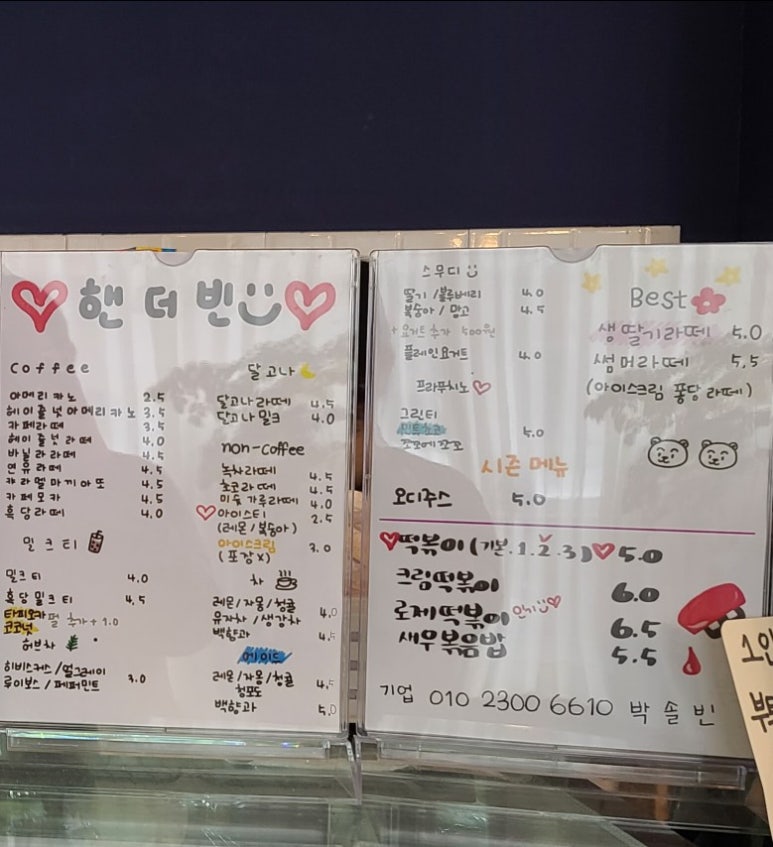 핸 더 빈
Coffee
아메리카노 2.5
헤이즐넛아메리카노 3.5
카페라떼 3.5
헤이즐넛라떼 4.0
바닐라라떼 4.5
연유라떼 4.5
캬라멜마끼아또 4.5
카페모카 4.5
흑당라떼 4.0
밀크티
밀크티 4.0
흑당밀크티 4.5
타피오카펄 추가 + 1.0
코코넛
허브차
히비스커스/얼그레이
루이보스/페퍼민트 3.0
달고나
달고나라떼 4.5
달고나밀크 4.0
non-coffee
녹차라떼 4.5
초코라떼 4.5
미숫가루라떼 4.0
아이스티 2.5
(레몬/복숭아)
아이스크림 3.0
(포장X)
차
레몬/자몽/청귤 4.0
유자차/생강차
백향과 4.5
에이드
레몬/자몽/청귤 4.5
청포도
백향과 5.0
스무디
딸기/블루베리 4.0
복숭아/망고 4.5
+요거트추가 500원
플레인요거트 4.0
프라푸치노
그린티
민트초코 5.0
쪼꼬에쪼꼬
시즌 메뉴
오디쥬스 5.0
Best
생딸기라떼 5.0
썸머라떼 5.5
(아이스크림 퐁당 라떼)
떡볶이(기본.1.2.3) 5.0
크림떡볶이 6.0
로제떡볶이 인기 6.5
새우볶음밥 5.5
기업 010 2300 6610 박솔빈
1인